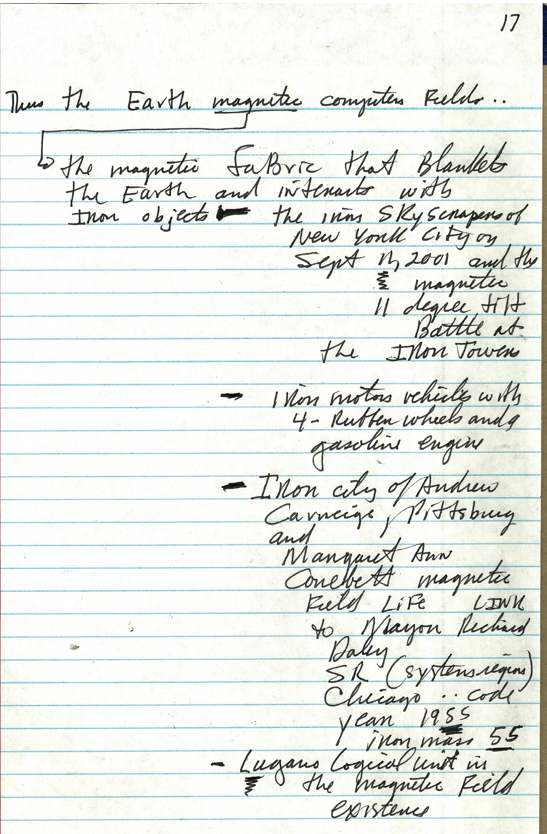 17
Thus the Earth magnetic computers Fields..
the magnetic FaBric that Blankets
the Earth and interacts with
Iron objects — the iron SKyscrapers of
New York City on
Sept 11, 2001 and the
magnetic
11 degree tilt
Battle at
the Iron Towers
— Iron motors vehicles with
4- Rubber wheels and g
gasoline engine
— Iron city of Andrew
Carneige, Pittsburg
and
Margaret Ann
Conebett magnetic
Field LiFe LINK
to Mayor Richard
Daley
SR (systems region)
Chicago .. code
year 1955
iron mass 55
- Lugano Logical unit in
the magnetic Field
existence